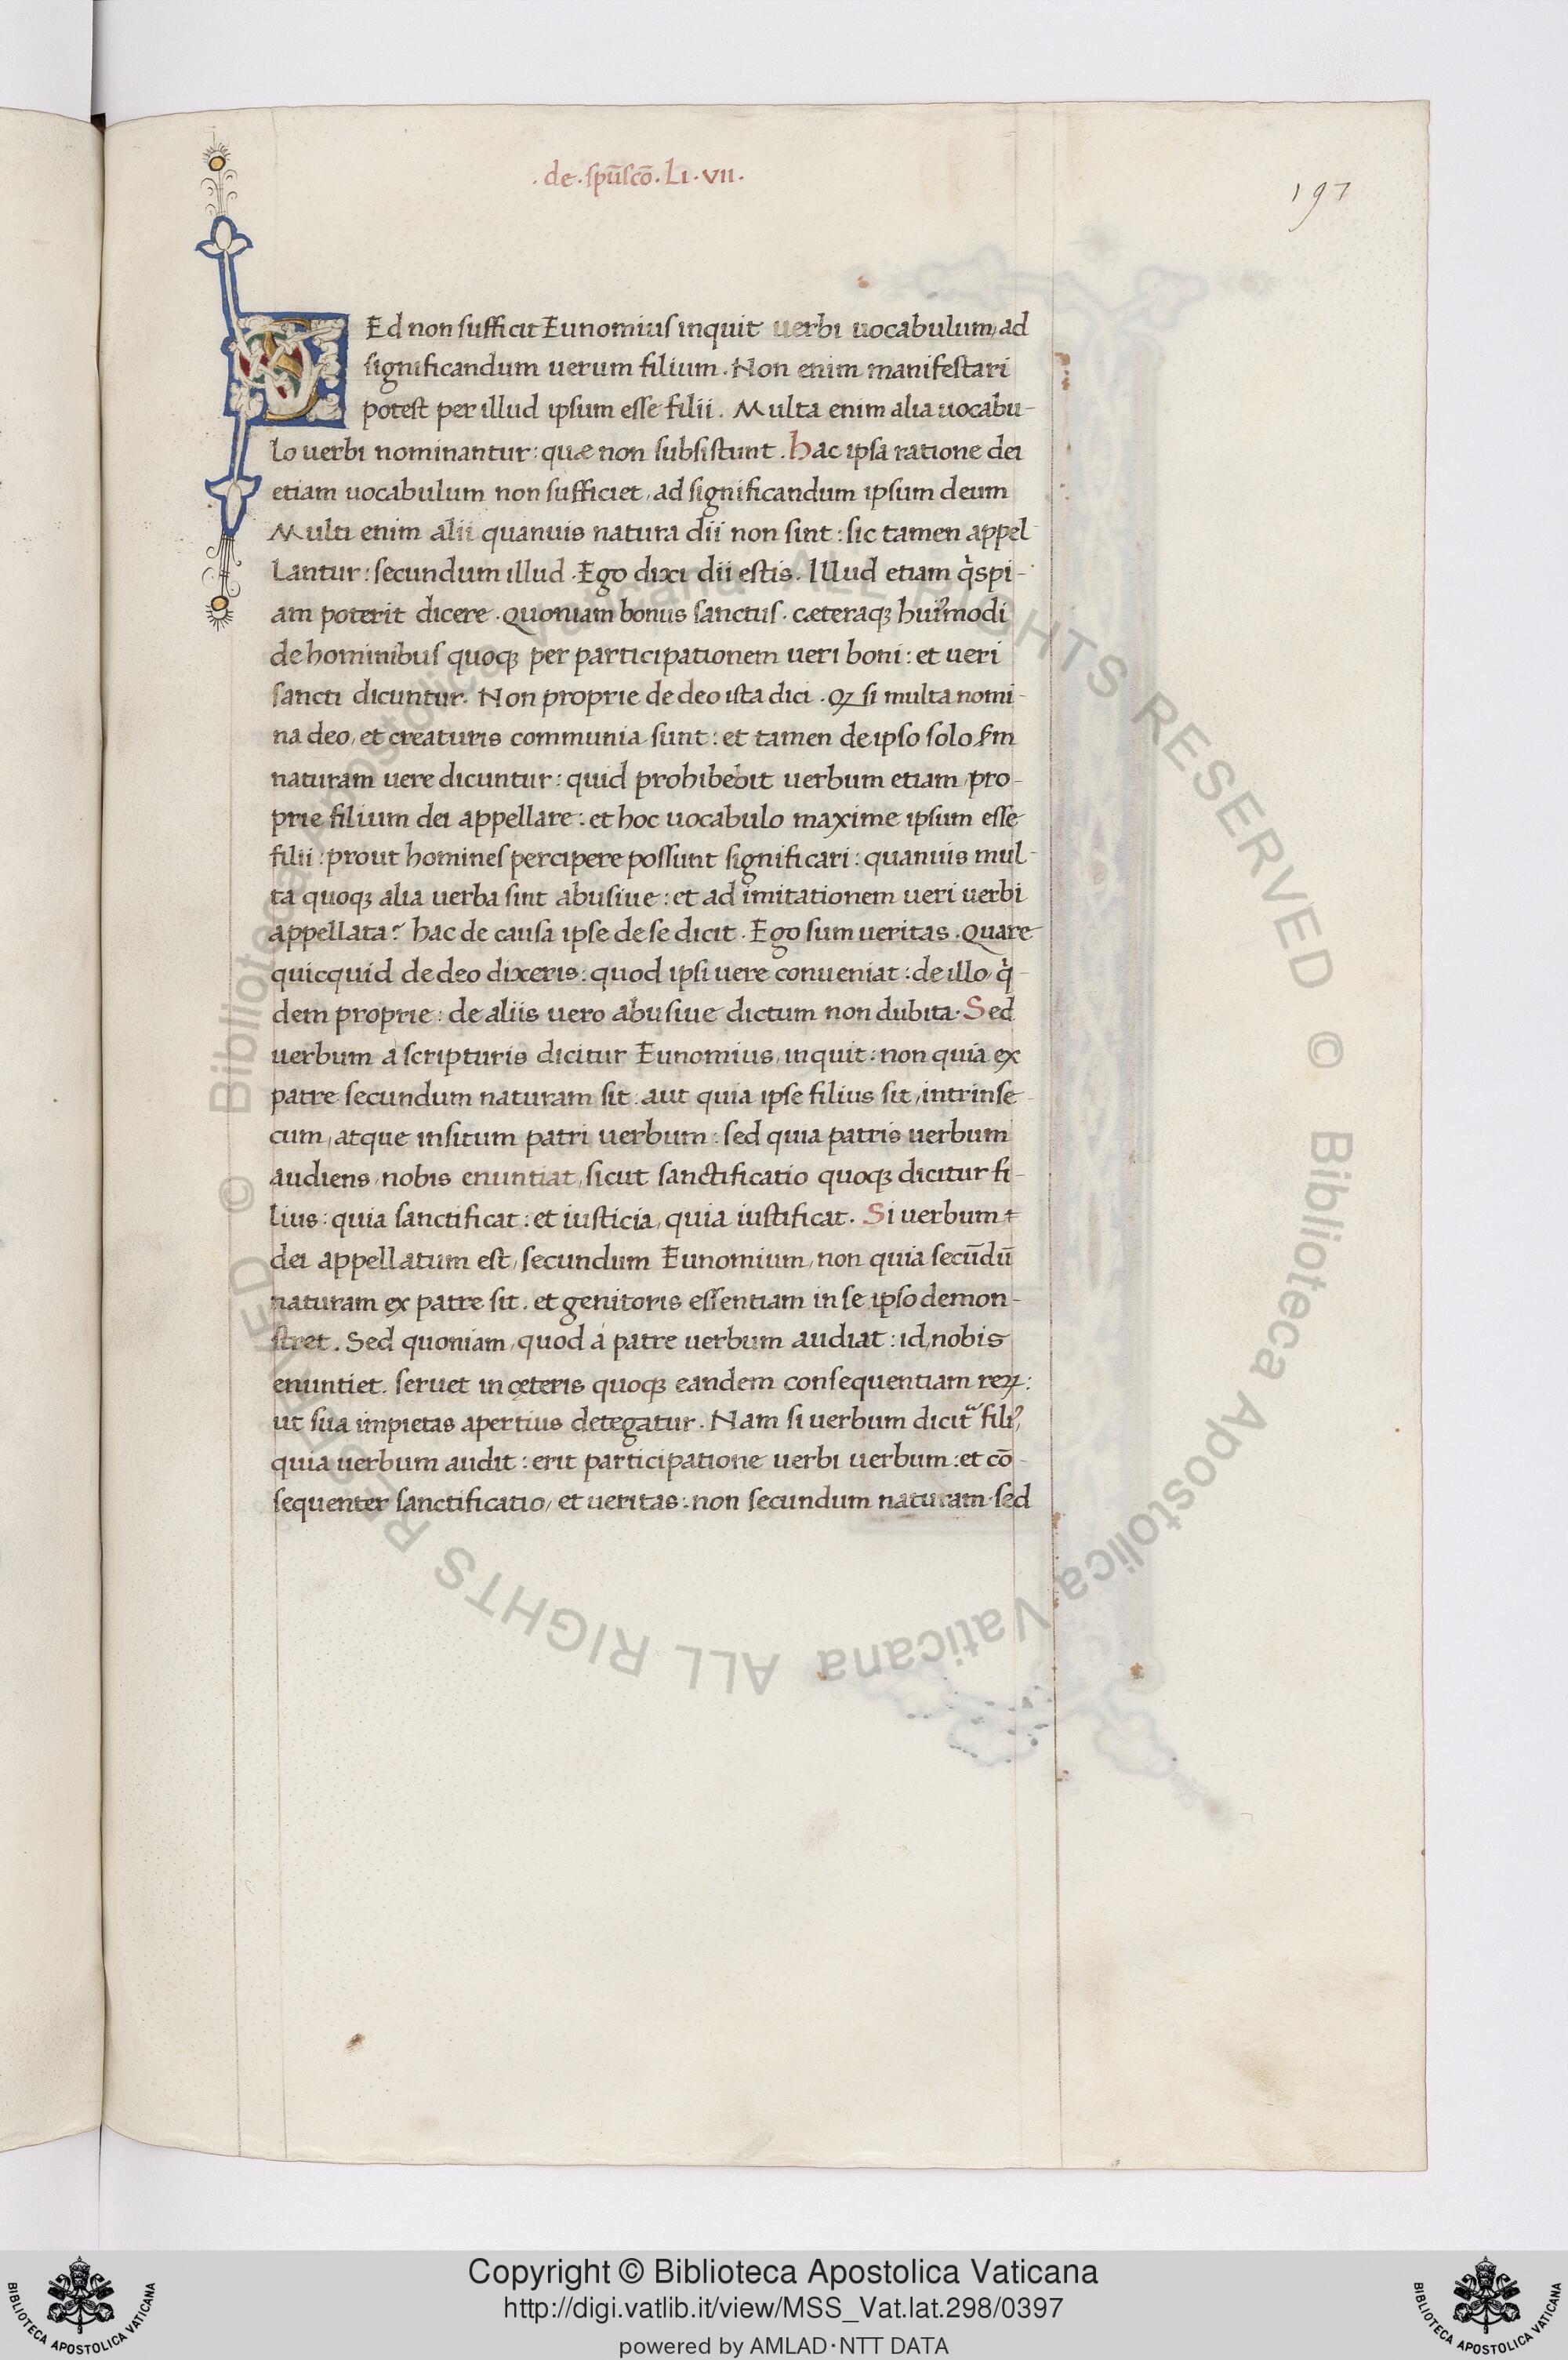 .de.spūscō.Li.vii.
197
SEd non sufficit Eunomius inquit uerbi uocabulum, ad
significandum uerum filium. Non enim manifestari
potest per illud ipsum esse filii. Multa enim alia uocabu-
lo uerbi nominantur: quæ non subsistunt. Hac ipsa ratione dei
etiam uocabulum non sufficiet, ad significandum ipsum deum
Multi enim alii quanuis natura dii non sint: sic tamen appel-
lantur: secundum illud. Ego dixi dii estis. Illud etiam q̉spi-
am poterit dicere. Quoniam bonus sanctus. cæteraqꝫ huiꝰmodi
de hominibus quoqꝫ per participationem ueri boni: et ueri
sancti dicuntur. Non proprie de deo ista dici. Qꝫ si multa nomi-
na deo, et creaturis communia sunt: et tamen de ipso solo ẜm
naturam uere dicuntur: quid prohibebit uerbum etiam, pro-
prie filium dei appellare: et hoc uocabulo maxime ipsum esse
filii: prout homines percipere possunt significari: quanuis mul-
ta quoqꝫ alia uerba sint abusiue: et ad imitationem ueri uerbi
appellata? hac de causa ipse de se dicit. Ego sum ueritas. Quare
quicquid de deo dixeris: quod ipsi uere conueniat: de illo q̉-
dem proprie: de aliis uero abusiue dictum non dubita. Sed
uerbum a scripturis dicitur Eunomius, inquit: non quia ex
patre secundum naturam sit: aut quia ipse filius sit, intrinse-
cum, atque insitum patri uerbum: sed quia patris uerbum
audiens, nobis enuntiat, sicut sanctificatio quoqꝫ dicitur fi-
lius: quia sanctificat: et iusticia, quia iustificat. Si uerbum
dei appellatum est, secundum Eunomium, non quia secūdū
naturam ex patre sit. et genitoris essentiam in se ipso demon-
stret. Sed quoniam, quod á patre uerbum audiat: id, nobis
enuntiet. seruet in cęteris quoqꝫ eandem consequentiam reꝝ:
ut sua impietas apertius detegatur. Nam si uerbum dicit᷑ filiꝰ,
quia uerbum audit: erit participatione uerbi uerbum: et cō-
sequenter sanctificatio, et ueritas: non secundum naturam. sed
© Biblioteca Apostolica Vaticana ALL RIGHTS RESERVED © Biblioteca Apostolica Vaticana ALL RIGHTS RESERVED
Copyright © Biblioteca Apostolica Vaticana
http://digi.vatlib.it/view/MSS_Vat.lat.298/0397
powered by AMLAD·NTT DATA
BIBLIOTECA APOSTOLICA VATICANA
BIBLIOTECA APOSTOLICA VATICANA